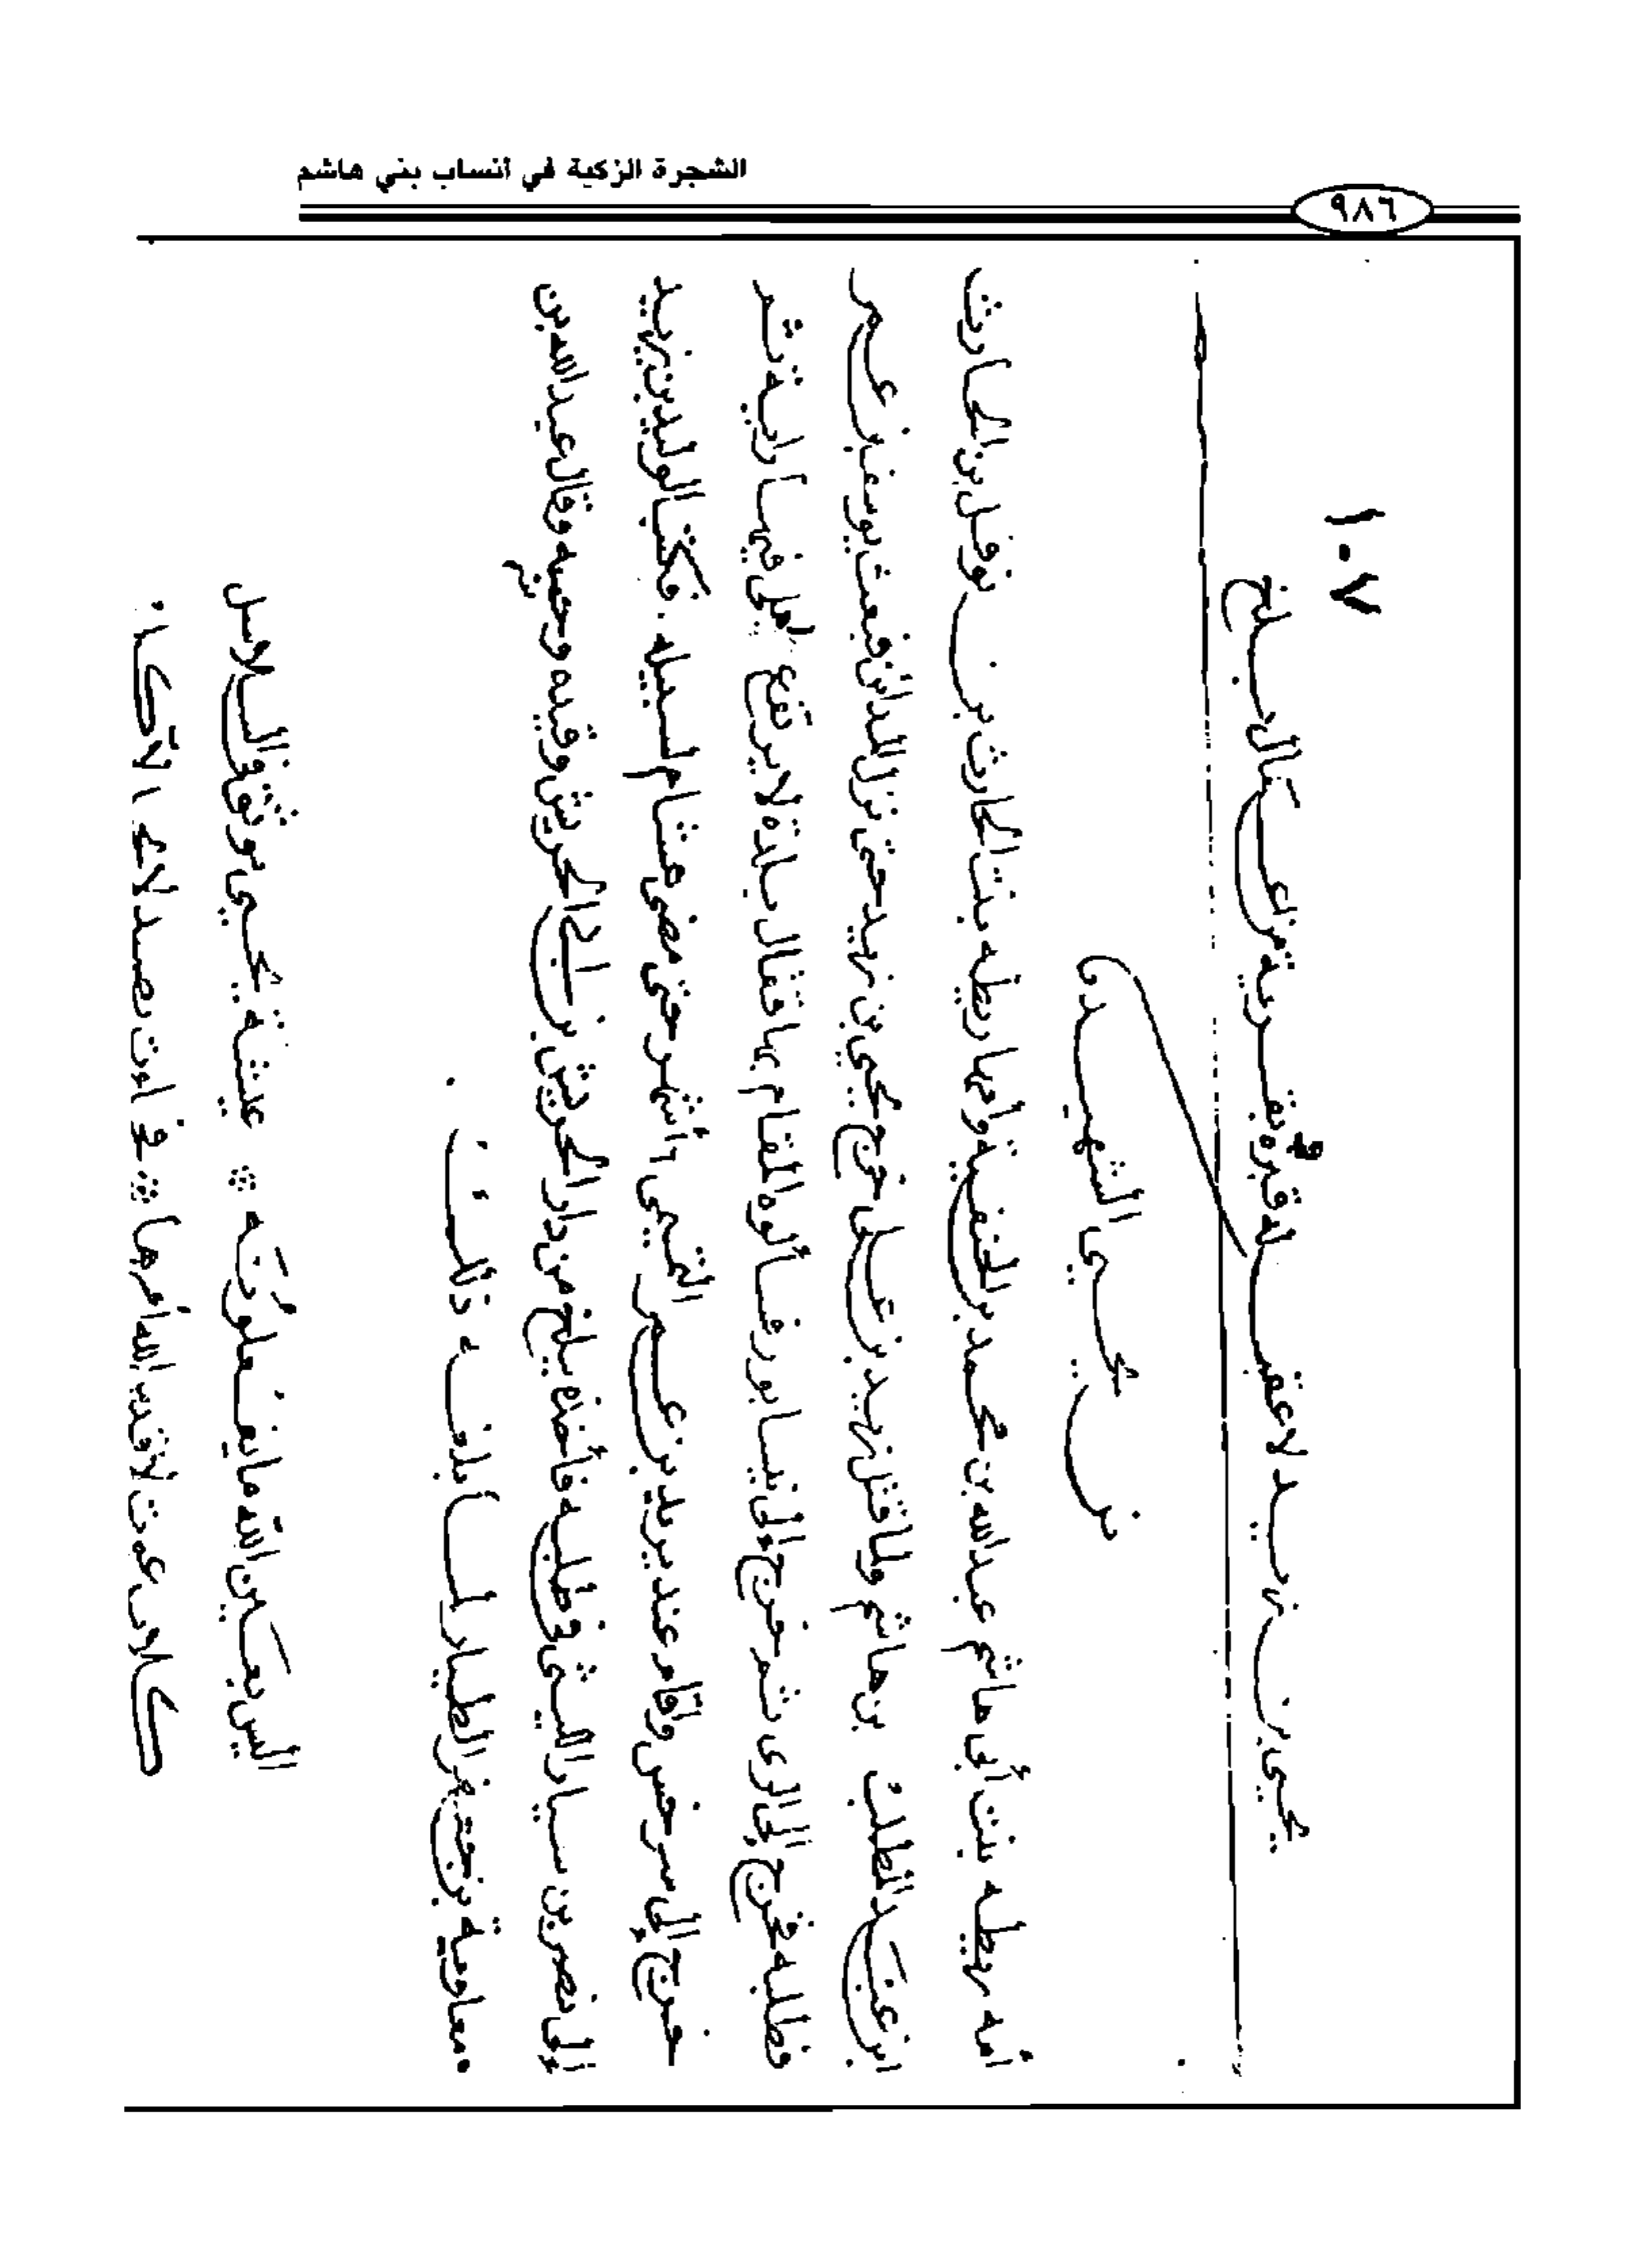 الشجرة الزكية في أنساب بني هاشم
٩٨٦
١٠٧
يحيى بن زيد لا عقب له قبره بقرية من عمال بلخ
بن يحيى الشهيدى
أمه ريطه بنت أبى هاشم عبدالله بن محمد بن الحنفية وأمها ريطه بنت الحارث بن نوفل بن الحارث
ابن عبد المطلب بن هاشم ولما قتل زيد بن على خرج يحيى بن زيد حتى نزل المدائن فبعث يوسف بن عمر
فى طلبه فخرج إلى الرى ثم خرج إلى نيسابور فسألوه المقام بها فقال بلدة لا يرتفع فيها راية ثم
خرج إلى سرخس وأقام عند يزيد بن عمر التيمى أشهر حتى مضى هشام لسبيله فكتب الوليد بن يزيد
إلى نصر بن سيار الليثى فى طلبه فأخذه ببلخ من دار الحريش بن أبى الحريش وقيده وحبسه فقال عبد الله بن
معاوية بن جعفر الطيار لما بلغه ذلك
اليس بعين الله ما يفعلونه * عشية يحيى موثق فى السلاسل
كلاب عوت لا قدس الله أمرها * فجاءت بصيد لا يحل لآكل